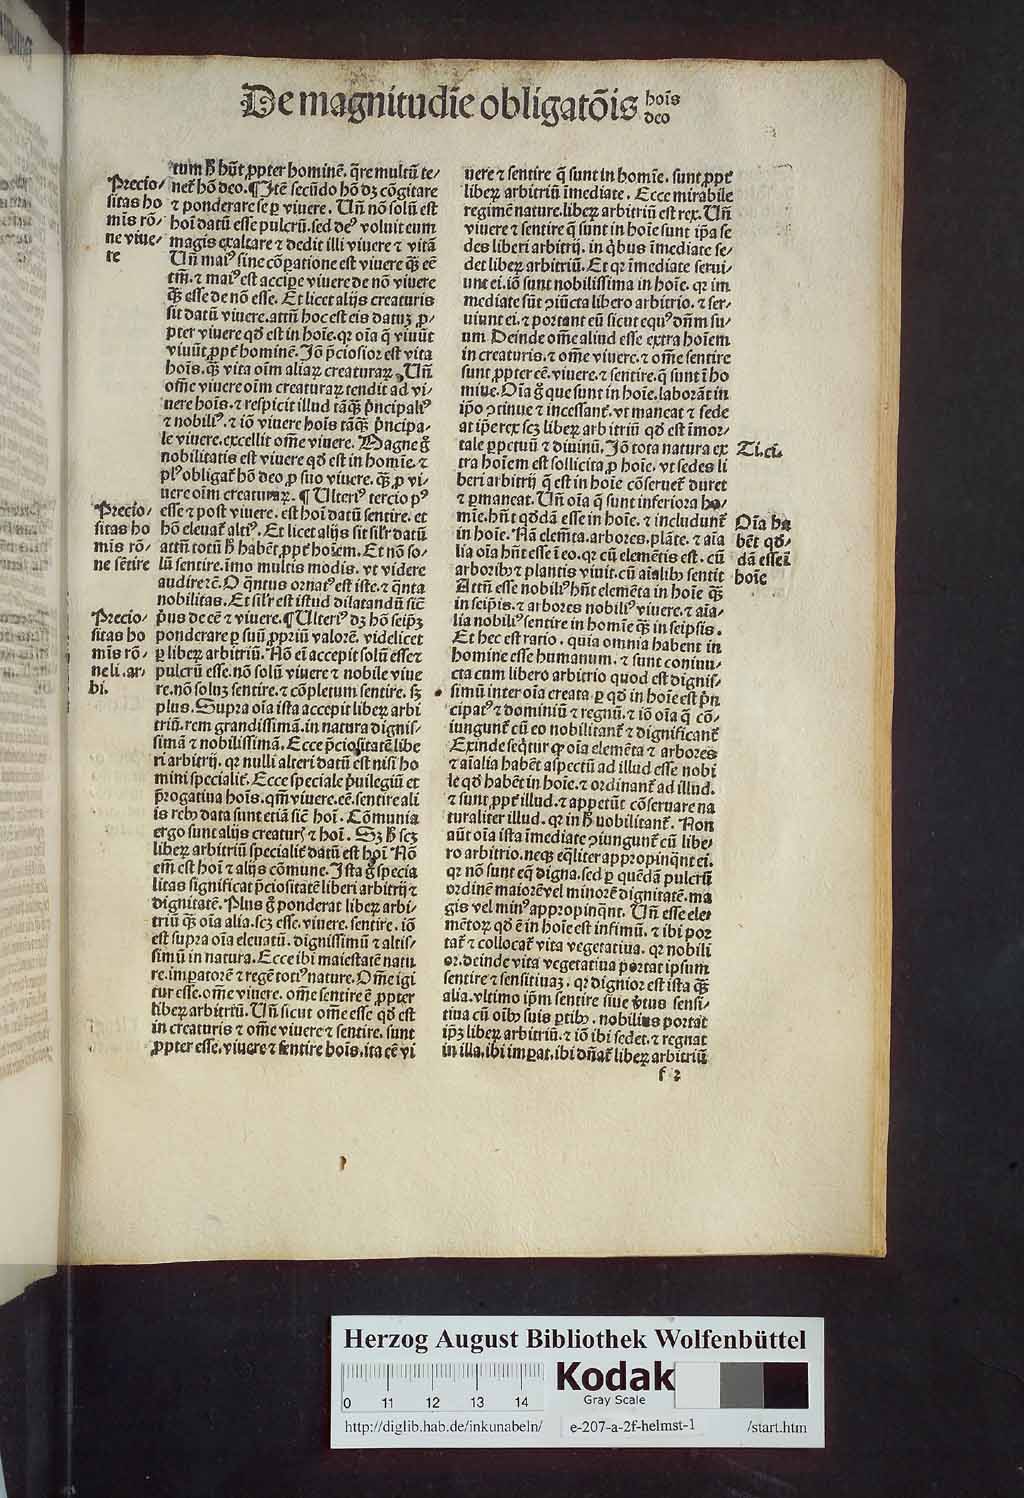 De magnitudīe obligatōis hoīs deo
tum ꝗ hūt ꝓpter hominē. q̄re multū te/
net᷑ hō deo. ¶ Itē secūdo hō dꝫ cōgitare
⁊ ponderare se ꝑ viuere. Uñ nō solū est
hoī datū esse pulcrū. sed deꝰ voluit eum
magis exaltare ⁊ dedit illi viuere ⁊ vitā
Uñ maiꝰ sine cōꝑatione est viuere q̄ꝫ eē
tm̄. ⁊ maiꝰ est accipe viuere de nō viuere
q̄ꝫ esse de nō esse. Et licet alijs creaturis
sit datū viuere. attn̄ hoc est eis datuꝫ ꝓ/
pter viuere qd̄ est in hoīe. qꝛ oīa q̄ viuūt
viuūt ꝓpt᷑ hominē. Iō p̄ciosior est vita
hoīs. q̄ꝫ vita oīm aliaꝝ creaturaꝝ. Uñ
om̄e viuere oīm creaturaꝝ tendit ad vi/
uere hoīs. ⁊ respicit illud tāq̄ꝫ p̄ncipaliꝰ
⁊ nobiliꝰ. ⁊ iō viuere hoīs tāq̄ꝫ p̄ncipa/
le viuere. excellit om̄e viuere. Magne g̃
nobilitatis est viuere qd̄ est in homīe. ⁊
plꝰ obligat᷑ hō deo ꝓ suo viuere. q̄ꝫ ꝓ vi/
uere oīm creaturaꝝ. ¶ Ulteriꝰ tercio pꝰ
esse ⁊ post viuere. est hoī datū sentire. et
hō eleuat᷑ altiꝰ. Et licet alijs sit silr̄ datū
attn̄ totū ꝗ habēt ꝓpt᷑ hoīem. Et nō so/
lū sentire. īmo multis modis. vt videre
audire ⁊c̄. O q̄ntus ornatꝰ est iste. ⁊ q̄nta
nobilitas. Et silr̄ est istud dilatandū sic̄
pͥus de eē ⁊ viuere. ¶ Ulteriꝰ dꝫ hō seipꝫ
ponderare ꝑ suū ꝓpriū valorē. videlicet
ꝑ libeꝝ arbitriū. Nō eī accepit solū esse ⁊
pulcrū esse. nō solū viuere ⁊ nobile viue
re. nō soluꝫ sentire. ⁊ cōpletum sentire. sꝫ
plus. Supra oīa ista accepit libeꝝ arbi
triū. rem grandissimā. in natura dignis/
simā ⁊ nobilissimā. Ecce p̄ciositatē libe
ri arbitrij. qꝛ nulli alteri datū est nisi ho
mini specialit᷑. Ecce speciale p̄uilegiū et
p̄rogatiua hoīs. qm̄ viuere. eē. sentire ali
is rebꝰ data sunt etiā sic̄ hoī. Cōmunia
ergo sunt alijs creatur̄ ⁊ hoī. Sꝫ ꝗ scꝫ
libeꝝ arbitriū specialit᷑ datū est hoī Nō
em̄ est hoī ⁊ alijs cōmune. Ista g̃ specia
litas significat p̄ciositatē liberi arbitrij ⁊
dignitatē. Plus g̃ ponderat libeꝝ arbi/
triū q̄ꝫ oīa alia. scꝫ esse. viuere. sentire. iō
est supra oīa eleuatū. dignissimū ⁊ altis/
simū in natura. Ecce ibi maiestatē natu
re. imꝑatorē ⁊ regē totiꝰ nature. Om̄e igi
tur esse. om̄e viuere. om̄e sentire ē ꝓpter
libeꝝ arbitriū. Uñ sicut om̄e esse qd̄ est
in creaturis ⁊ om̄e viuere ⁊ sentire. sunt
ꝓpter esse. viuere ⁊ sentire hoīs. ita eē vi
Precio/
sitas ho
mīs rō/
ne viue/
re
Precio/
sitas ho
mīs rō/
ne sētire
Precio/
sitas ho
mīs rō/
ne li. ar/
bi.
uere ⁊ sentire q̄ sunt in homīe. sunt ꝓpt᷑
libeꝝ arbitriū īmediate. Ecce mirabile
regimē nature. libeꝝ arbitriū est rex. Uñ
viuere ⁊ sentire q̄ sunt in hoīe sunt ip̄a se
des liberi arbitrij. in qͥbus īmediate se/
det libeꝝ arbitriū. Et qꝛ īmediate serui/
unt ei. iō sunt nobilissima in hoīe. qꝛ im
mediate sūt ꝯiūcta libero arbitrio. ⁊ ser/
uiunt ei. ⁊ portant eū sicut equꝰ dn̄m su/
um Deinde om̄e aliud esse extra hoīem
in creaturis. ⁊ om̄e viuere. ⁊ om̄e sentire
sunt ꝓpter eē. viuere. ⁊ sentire. q̄ sunt ī ho
mīe. Oīa g̃ que sunt in hoīe. laborāt in
ip̄o ꝯtinue ⁊ incessant᷑. vt maneat ⁊ sede
at ip̄e rex scꝫ libeꝝ arbitriū qd̄ est īmor/
tale ꝑpetuū ⁊ diuinū. Iō tota natura ex
tra hoīem est sollicita ꝓ hoīe. vt sedes li
beri arbitrij q̄ est in hoīe cōseruet᷑ duret
⁊ ꝑmaneat. Uñ oīa q̄ sunt inferiora ho/
mīe. hn̄t qd̄dā esse in hoīe. ⁊ includunt᷑
in hoīe. Nā elem̄ta. arbores. plāte. ⁊ aīa
lia oīa hn̄t esse ī eo. qꝛ cū elemētis est. cū
arboribꝰ ⁊ plantis viuit. cū aīalibꝰ sentit
Attn̄ esse nobiliꝰ hn̄t elemēta in hoīe q̄ꝫ
in seipīs. ⁊ arbores nobiliꝰ viuere. ⁊ aīa/
lia nobiliꝰ sentire in homīe q̄ꝫ in seipsis.
Et hec est ratio. quia omnia habent in
homine esse humanum. ⁊ sunt coniun/
cta cum libero arbitrio quod est dignis/
simū inter oīa creata. ꝑ qd̄ in hoīe est p̄n
cipatꝰ ⁊ dominiū ⁊ regnū. ⁊ iō oīa q̄ cō/
iungunt᷑ cū eo nobilitant᷑ ⁊ dignificant᷑
Exinde seqͥtur ꝙ oīa elemēta ⁊ arbores
⁊ aīalia habēt aspectū ad illud esse nobi
le qd̄ habēt in hoīe. ⁊ ordinant᷑ ad illud.
⁊ sunt ꝓpt᷑ illud. ⁊ appetūt cōseruare na
turaliter illud. qꝛ in ꝗ nobilitant᷑. Non
aūt oīa ista īmediate ꝯiungunt᷑ cū libe/
ro arbitrio. neqꝫ eq̄liter appropinq̄nt ei.
qꝛ nō sunt eq̄ digna. sed ꝑ quēdā pulcrū
ordinē maiorē vel minorē dignitatē. ma
gis vel minꝰ appropinq̄nt. Uñ esse ele
mētoꝝ qd̄ ē in hoīe est infimū. ⁊ ibi por
tat᷑ ⁊ collocat᷑ vita vegetatiua. qꝛ nobili
or. deinde vita vegetatiua portat ipsum
sentire ⁊ sensitiuaꝫ. qꝛ dignior est ista q̄ꝫ
alia. vltimo ip̄m sentire siue vͥtus sensi/
tiua cū oībꝰ suis ꝑtibꝰ. nobilius portat
ip̄ꝫ libeꝝ arbitriū. ⁊ iō ibi sedet. ⁊ regnat
in illa. ibi imꝑat. ibi dn̄at᷑ libeꝝ arbitriū
Ti. ci.
Oīa ha
bēt qd̄/
dā esse ī
hoīe
f 2
Herzog August Bibliothek Wolfenbüttel
0 11 12 13 14
Kodak
Gray Scale
http://diglib.hab.de/inkunabeln/ e-207-a-2f-helmst-1 /start.htm